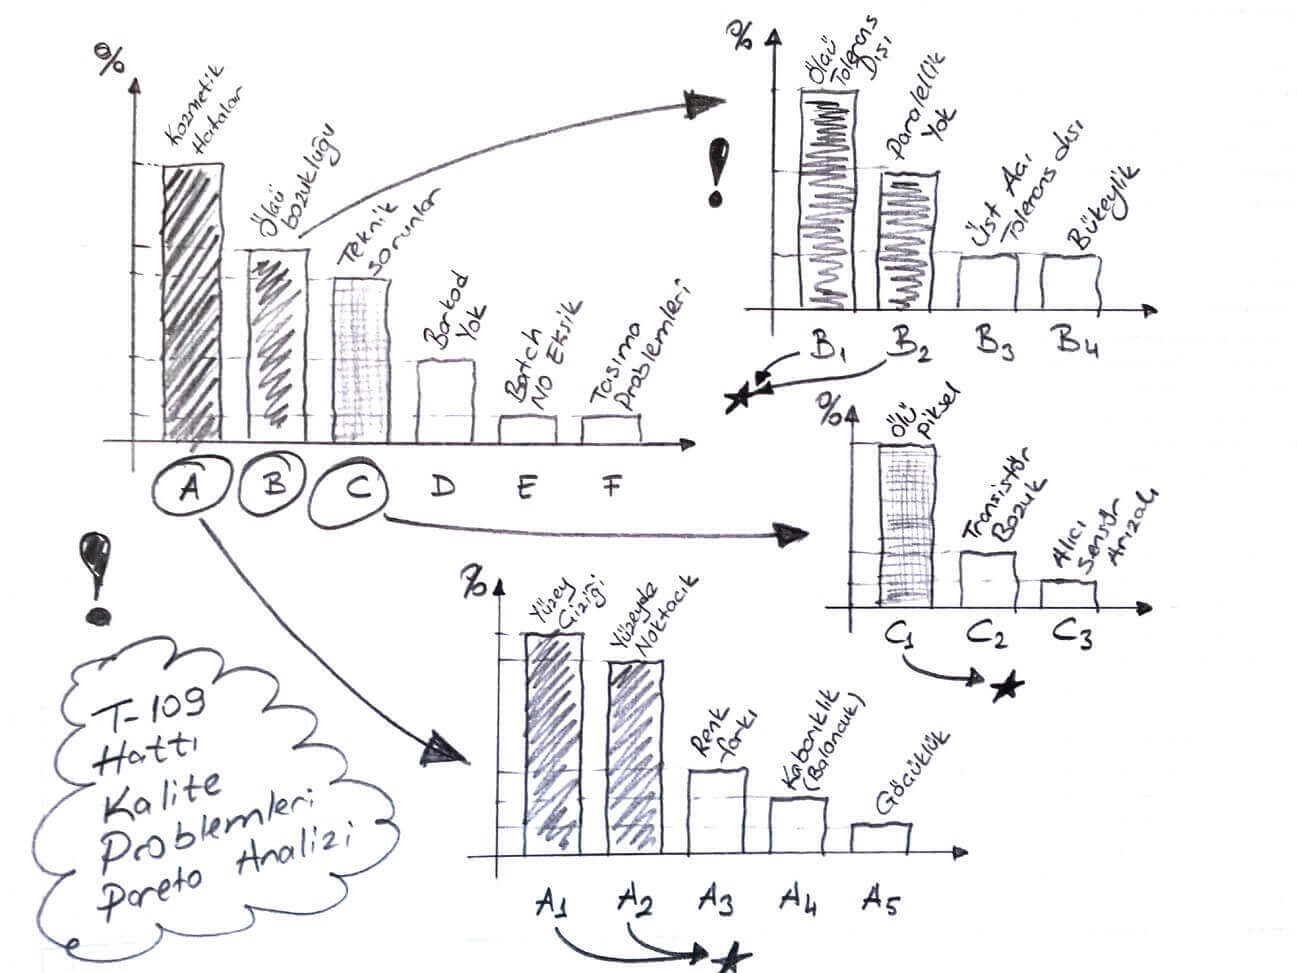 %
Kozmetik
Hatalar
Ölçü
bozukluğu
Teknik
sorunlar
Barkod
Yok
Batch
NO Eksik
Tasıma
Problemleri
A B C D E F
%
Ölçü
Tolerans
Dışı
Paralellik
Yok
Üst Açı
Tolerans dışı
Bükeylik
B1 B2 B3 B4
%
Ölü
piksel
Transistör
Bozuk
Alıcı
Sensör
Arızalı
C1 C2 C3
%
Yüzey
Çiziği
Yüzeyde
Noktacık
Renk
farkı
Kabarıklık
(Baloncuk)
Göçüklük
A1 A2 A3 A4 A5
T-109
Hattı
Kalite
Problemleri
Pareto Analizi